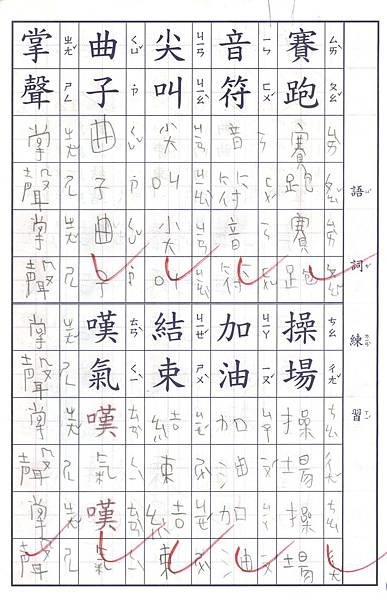 語詞練習
賽跑賽跑賽跑
ㄙㄞˋ ㄆㄠˇ ㄙㄞˋ ㄆㄠˇ ㄙㄞˋ ㄆㄠˇ
音符音符音符
ㄧㄣ ㄈㄨˊ ㄧㄣ ㄈㄨˊ ㄧㄣ ㄈㄨˊ
尖叫尖叫尖叫
ㄐㄧㄢ ㄐㄧㄠˋ ㄐㄧㄢ ㄐㄧㄠˋ ㄐㄧㄢ ㄐㄧㄠˋ
曲子曲子曲子
ㄑㄩˇ ˙ㄗ ㄑㄩˇ ˙ㄗ ㄑㄩˇ ˙ㄗ
掌聲掌聲掌聲
ㄓㄤˇ ㄕㄥ ㄓㄤˇ ㄕㄥ ㄓㄤˇ ㄕㄥ
操場操場操場
ㄘㄠ ㄔㄤˇ ㄘㄠ ㄔㄤˇ ㄘㄠ ㄔㄤˇ
加油加油加油
ㄐㄧㄚ ㄧㄡˊ ㄐㄧㄚ ㄧㄡˊ ㄐㄧㄚ ㄧㄡˊ
結束結束結束
ㄐㄧㄝˊ ㄕㄨˋ ㄐㄧㄝˊ ㄕㄨˋ ㄐㄧㄝˊ ㄕㄨˋ
嘆氣嘆氣嘆氣
ㄊㄢˋ ㄑㄧˋ ㄊㄢˋ ㄑㄧˋ ㄊㄢˋ ㄑㄧˋ
掌聲掌聲掌聲
ㄓㄤˇ ㄕㄥ ㄓㄤˇ ㄕㄥ ㄓㄤˇ ㄕㄥ